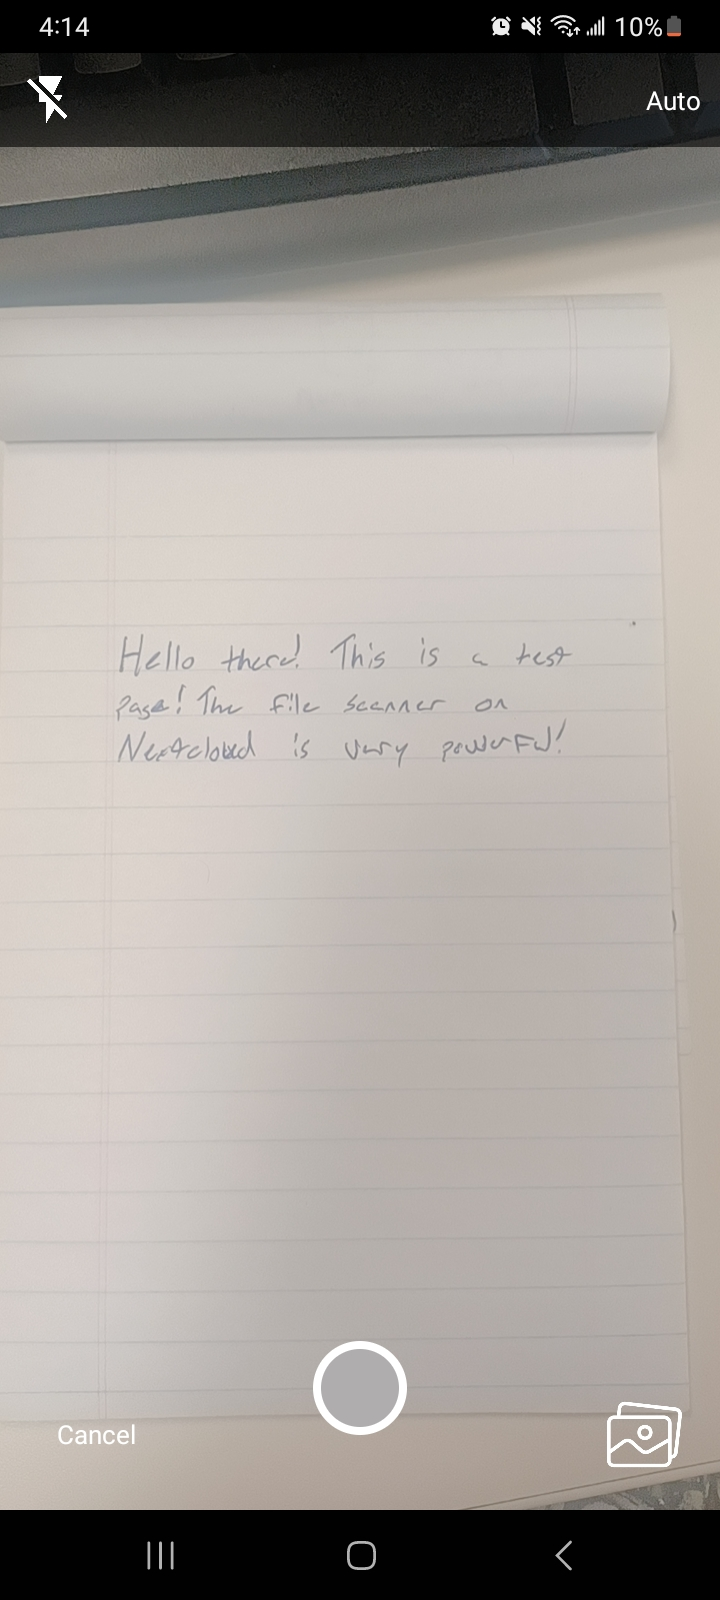 4:14 10%
Auto
Hello there! This is a test
page! The file scanner on
Nextcloud is very powerful!
Cancel